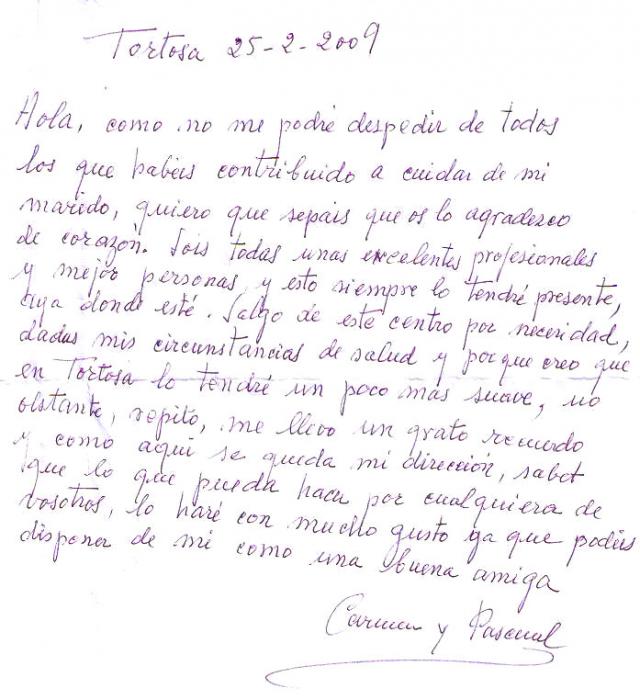 Tortosa 25-2-2009
Hola, como no me podré despedir de todos
los que habéis contribuido a cuidar de mi
marido, quiero que sepais que os lo agradezco
de corazón. Sois todas unas excelentes profesionales
y mejor personas, y esto siempre lo tendré presente,
alla donde esté. Salgo de este centro por necesidad,
dadas mis circunstancias de salud y porque creo que
en Tortosa lo tendré un poco mas suave, no
obstante, repito, me llevo un grato recuerdo
y como aqui se queda mi dirección, sabet
que lo que pueda hacer por cualquiera de
vosotros, lo haré con mucho gusto ya que podéis
disponer de mi como una buena amiga
Carmen y Pascual